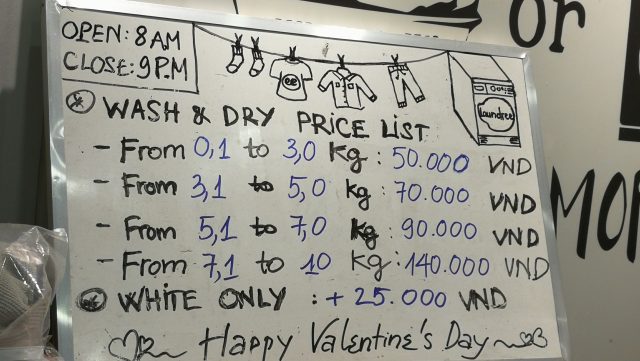 or
OPEN: 8 AM
CLOSE: 9 P.M
WASH & DRY PRICE LIST
- From 0,1 to 3,0 Kg : 50.000 VND
- From 3,1 to 5,0 kg : 70.000 VND
- From 5,1 to 7,0 kg : 90.000 VND
- From 7,1 to 10 Kg : 140.000 VND
WHITE ONLY : + 25.000 VND
Happy Valentine's Day